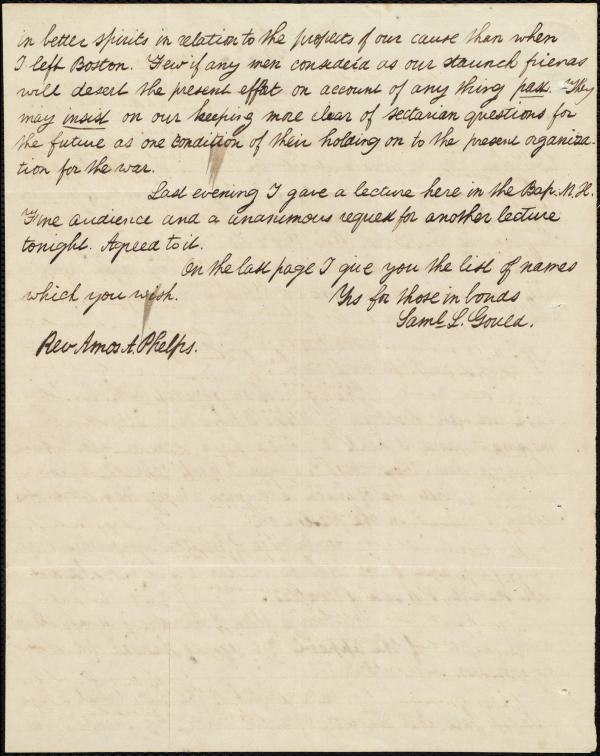 in better spirits in relation to the prospects of our cause than when
I left Boston. Few if any men considerd as our staunch friends
will desert the present effort on account of any thing past. They
may insist on our keeping more clear of sectarian questions for
the future as one condition of their holding on to the present organiza-
tion for the war.
Last evening I gave a lecture here in the Bap. M. H.
Fine audience and a unanimous request for another lecture
tonight. Agreed to it.
On the last page I give you the list of names
which you wish.
Yrs for those in bonds
Saml. L. Gould.
Rev Amos A. Phelps.